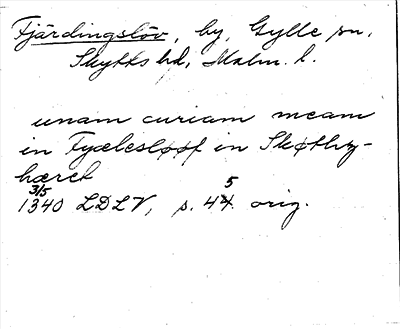 Fjärdingslöv, by, Gylle sn,
Skytts hd, Malm. l.
unam curiam meam
in Fyælesløøf in Skøthry-
hæret
3/5 5
1340 LDLV, s. 44. orig.